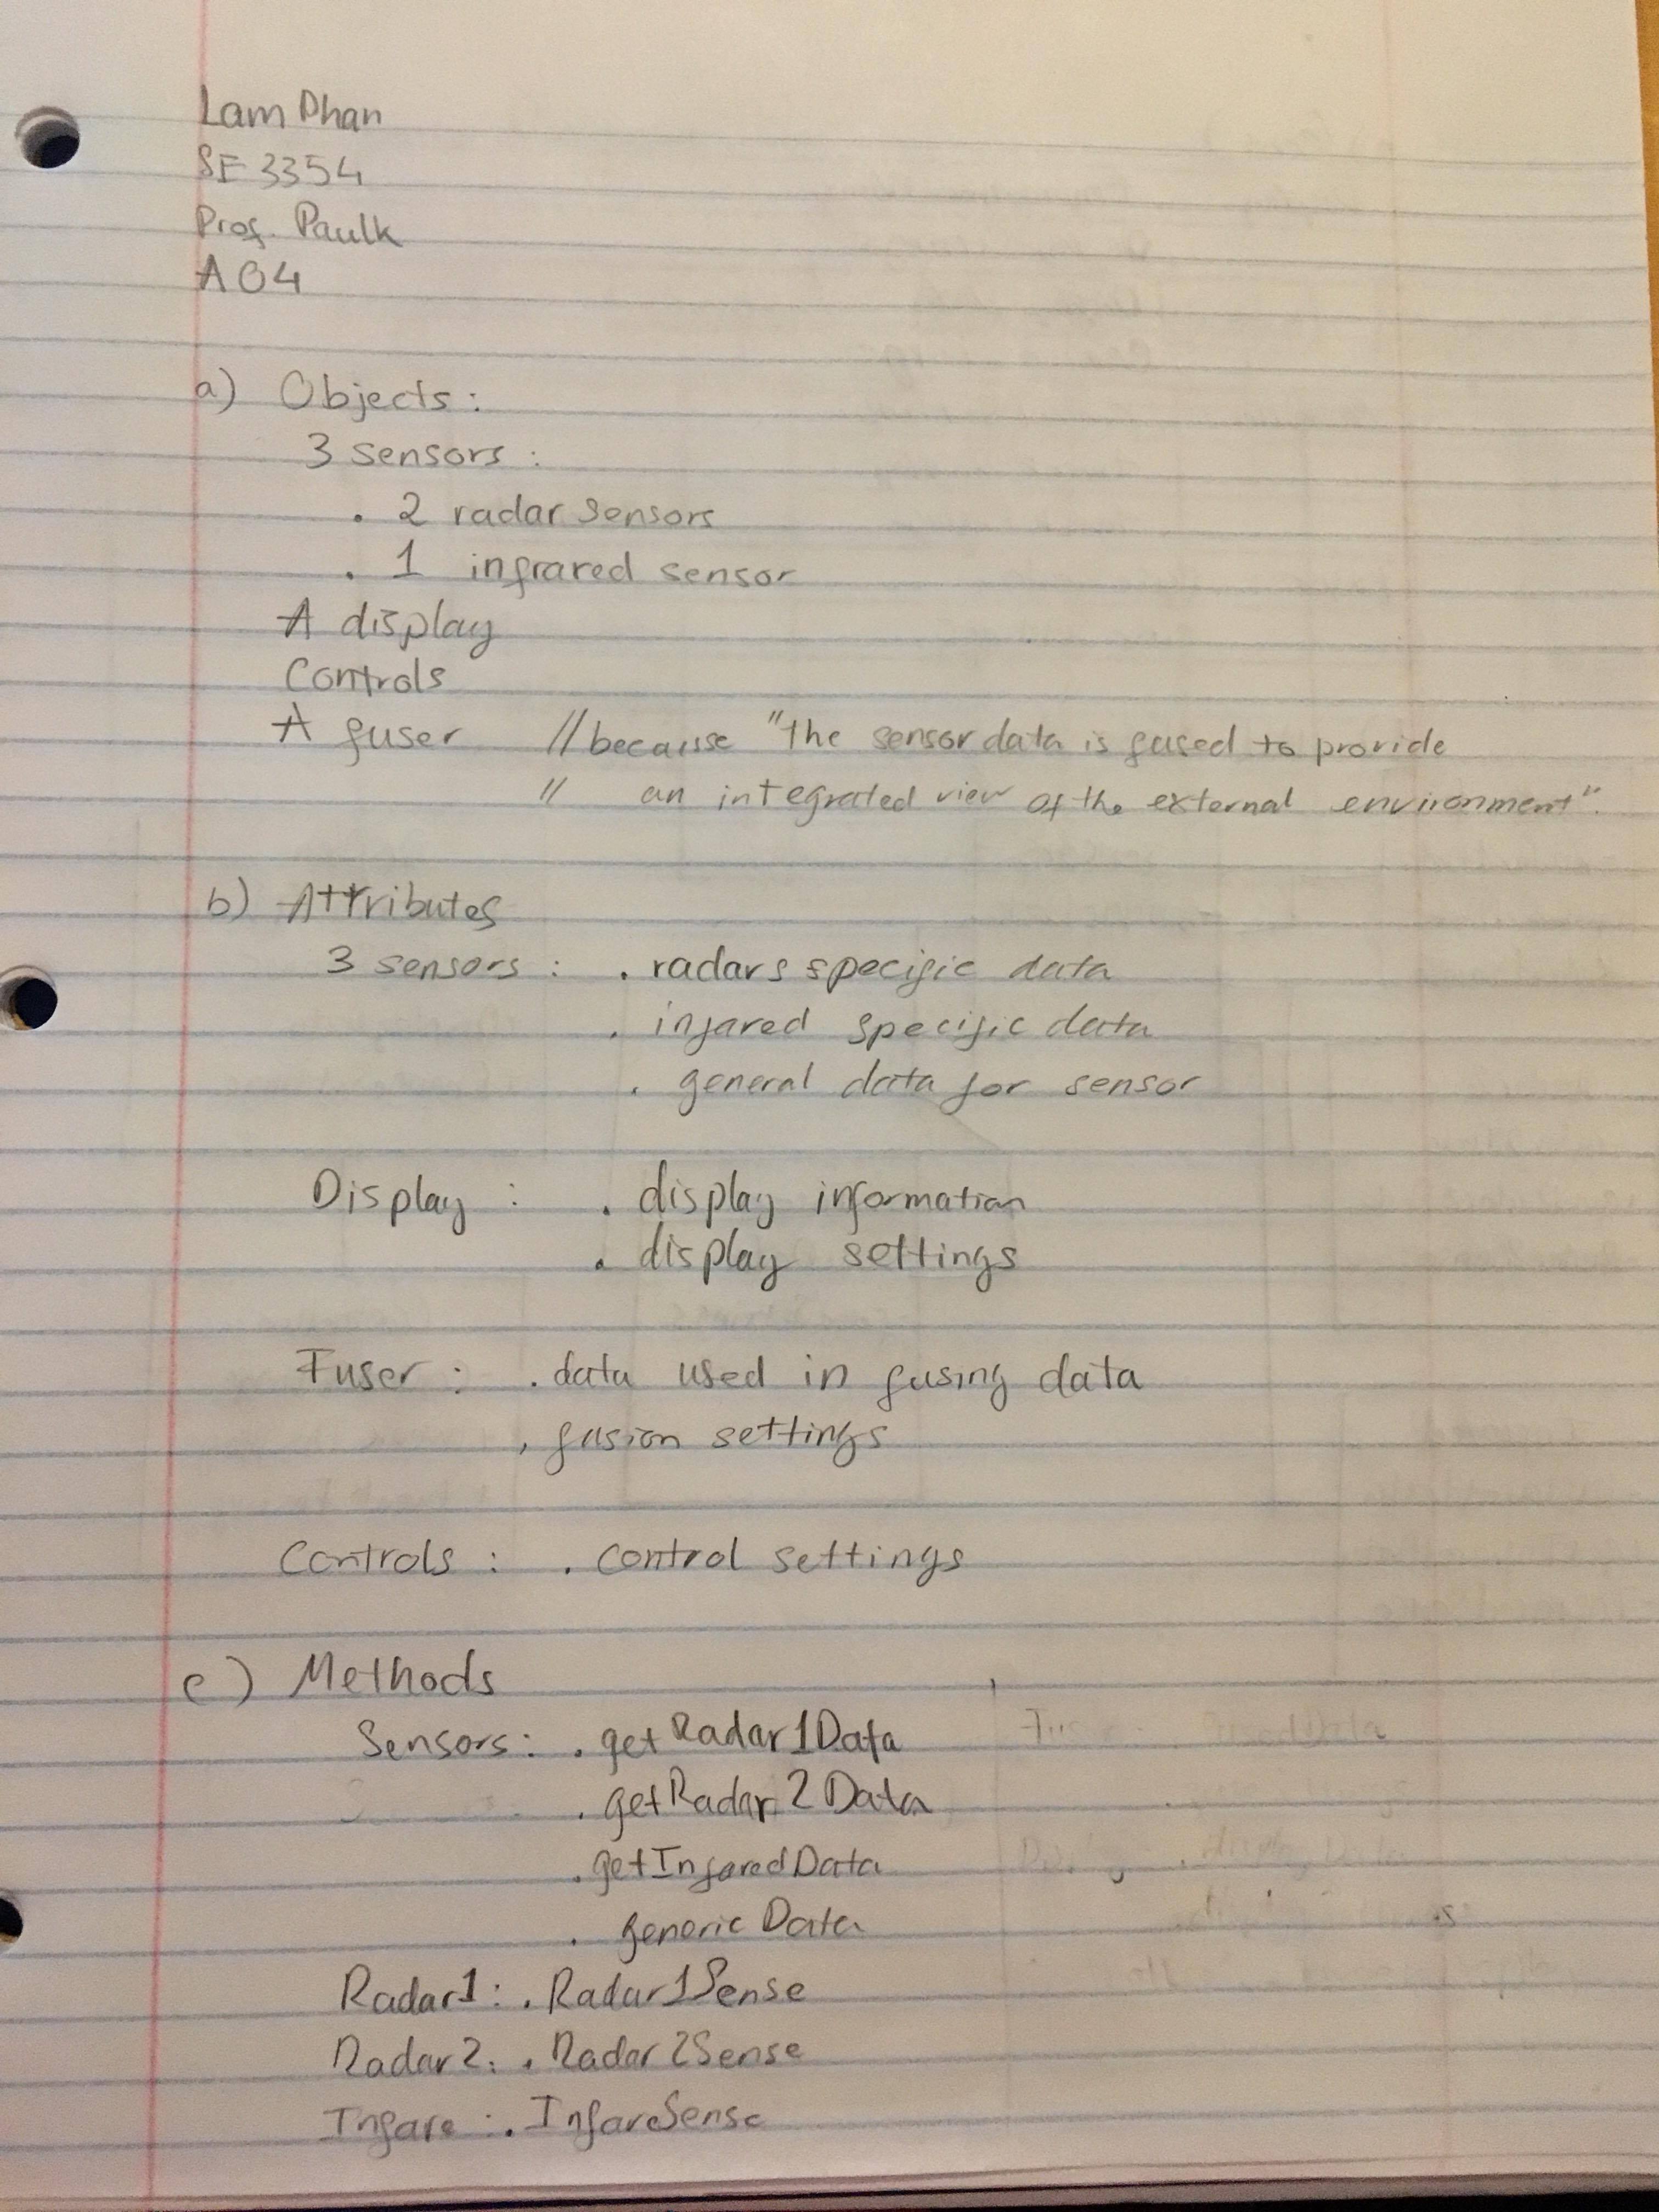 Lam Phan
SE 3354
Prof. Paulk
A04
a) Objects:
3 sensors:
. 2 radar sensors
. 1 infrared sensor
A display
Controls
A fuser //because "the sensor data is fused to provide
// an integrated view of the external environment".
b) Attributes
3 sensors: . radars specific data
. infared specific data
. general data for sensor
Display: . display information
. display settings
Fuser: . data used in fusing data
. fusion settings
Controls: . control settings
c) Methods
Sensors: . getRadar1Data
. getRadar2Data
. getInfaredData
. genericData
Radar1: . Radar1Sense
Radar2: . Radar2Sense
Infare: . InfareSense